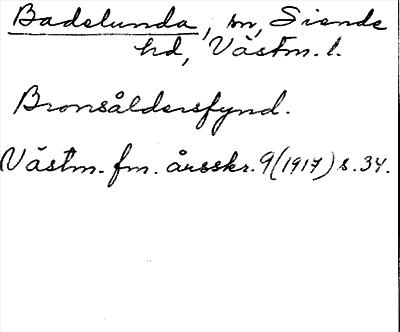 Badelunda, sn, Siende
hd, Västm. l.
Bronsåldersfynd.
Västm. fm. årsskr. 9 (1917) s. 34.